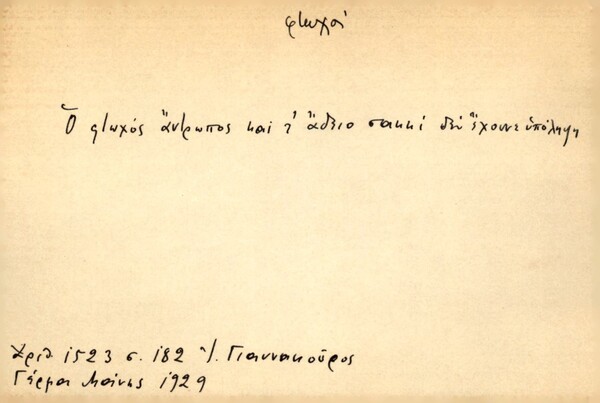 φτωχοί
Ὁ φτωχός ἄντρωπος καί τ' ἄδειο σακκί δέν ἔχουνε ὑπόληψη
Ἀριθ. 1523 σ. 182 Ἰ. Γιαννακοῦρος
Γέρμα Μάνης 1929